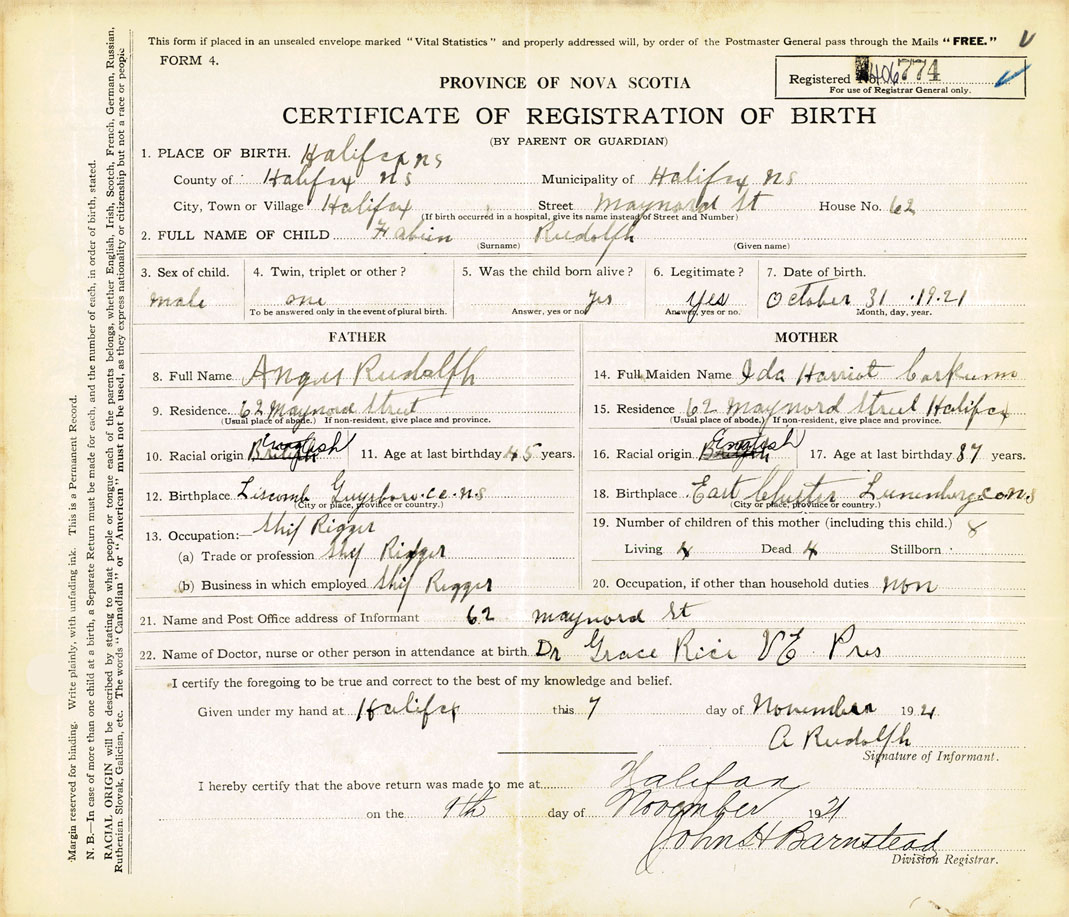 This form if placed in an unsealed envelope marked "Vital Statistics" and properly addressed will, by order of the Postmaster General pass through the Mails "FREE."
FORM 4.
Registered No. 406774
For use of Registrar General only.
PROVINCE OF NOVA SCOTIA
CERTIFICATE OF REGISTRATION OF BIRTH
(BY PARENT OR GUARDIAN)
1. PLACE OF BIRTH. Halifax ns
County of Halifax ns Municipality of Halifax ns
City, Town or Village Halifax Street Maynord St House No. 62
(If birth occurred in a hospital, give its name instead of Street and Number)
2. FULL NAME OF CHILD Fabien Rudolph
(Surname) (Given name)
3. Sex of child. 4. Twin, triplet or other? 5. Was the child born alive? 6. Legitimate? 7. Date of birth.
male one yes yes October 31 1921
To be answered only in the event of plural birth. Answer, yes or no Answer, yes or no. Month, day, year.
FATHER MOTHER
8. Full Name Angus Rudolph 14. Full Maiden Name Ida Harriot Corkum
9. Residence 62 Maynord Street 15. Residence 62 Maynord Street Halifax
(Usual place of abode.) If non-resident, give place and province. (Usual place of abode.) If non-resident, give place and province.
10. Racial origin English 11. Age at last birthday 45 years. 16. Racial origin English 17. Age at last birthday 37 years.
12. Birthplace Liscomb Guysboro. co. ns 18. Birthplace East Chester Lunenberg co ns
(City or place, province or country.) (City or place, province or country.)
13. Occupation:— Ship Rigger 19. Number of children of this mother (including this child.) 8
(a) Trade or profession Ship Rigger Living 4 Dead 4 Stillborn
(b) Business in which employed Ship Rigger 20. Occupation, if other than household duties non
21. Name and Post Office address of Informant 62 maynord st
22. Name of Doctor, nurse or other person in attendance at birth Dr Grace Rice Pres
I certify the foregoing to be true and correct to the best of my knowledge and belief.
Given under my hand at Halifax this 7 day of November 1921
A Rudolph
Signature of Informant.
I hereby certify that the above return was made to me at Halifax
on the 9th day of November 1921
John H Barnstead
Division Registrar.
Margin reserved for binding. Write plainly, with unfading ink. This is a Permanent Record.
N. B.—In case of more than one child at a birth, a Separate Return must be made for each, and the number of each, in order of birth, stated.
RACIAL ORIGIN will be described by stating to what people or tongue each of the parents belongs, whether English, Irish, Scotch, French, German, Russian,
Ruthenian, Slovak, Galician, etc. The words "Canadian" or "American" must not be used, as they express nationality or citizenship but not a race or people